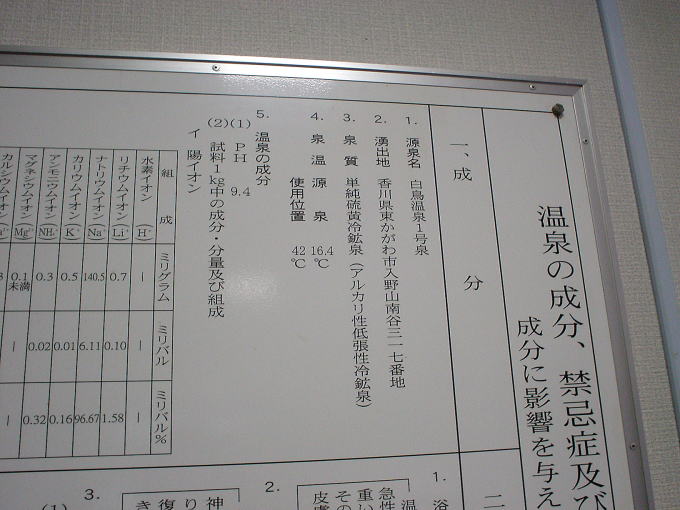 温泉の成分、禁忌症及び
成分に影響を与え
一、成 分
1. 源泉名 白鳥温泉1号泉
2. 湧出地 香川県東かがわ市入野山南谷三一七番地
3. 泉質 単純硫黄冷鉱泉（アルカリ性低張性冷鉱泉）
4. 泉温 源泉 16.4℃
使用位置 42℃
5. 温泉の成分
(1) PH 9.4
(2) 試料1kg中の成分・分量及び組成
イ 陽イオン
組成 ミリグラム ミリバル ミリバル%
水素イオン (H⁺) — — —
リチウムイオン (Li⁺) 0.7 0.10 1.58
ナトリウムイオン (Na⁺) 140.5 6.11 96.67
カリウムイオン (K⁺) 0.5 0.01 0.16
アンモニウムイオン (NH₄⁺) 0.3 0.02 0.32
マグネシウムイオン (Mg²⁺) 0.1未満 — —
カルシウムイオン
二
1. 浴
温
急性
重い
その
皮膚
2.
神
り
復
き
3.
(1)